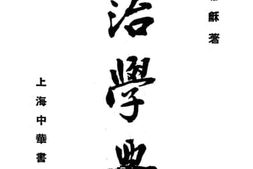 著
治學與
上海中華書